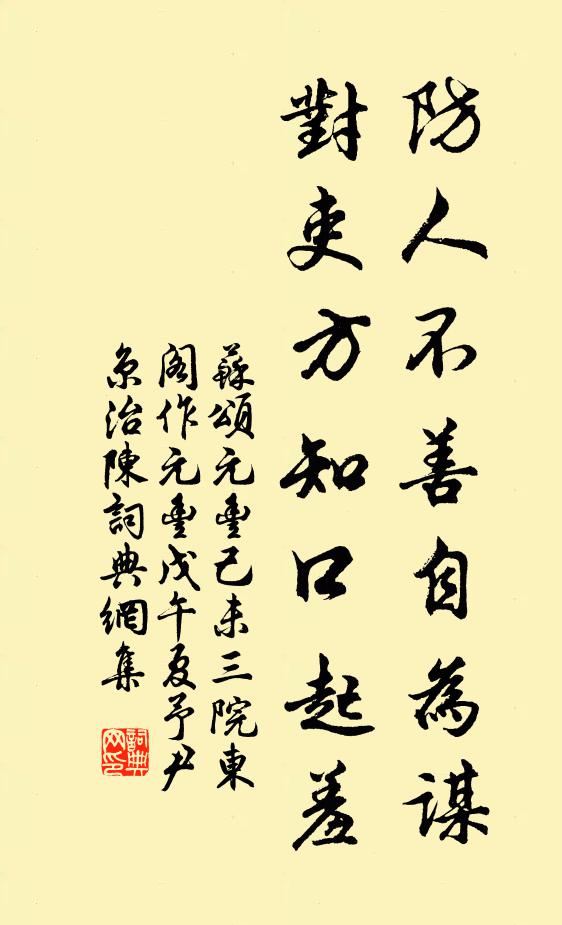 防人不善自為謀
對吏方知口起羞
蘇頌元豐己未三院東
閣作元豐戊午夏予尹
京治陳詞典網集
詞典網印